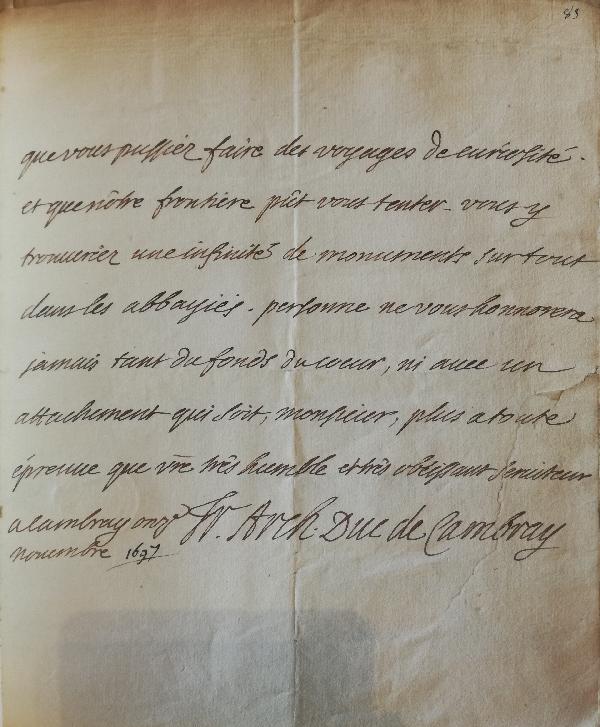 83
que vous pussiez faire des voyages de curiosité.
et que nôtre frontiere pût vous tenter vous y
trouueriez une infinité de monuments sur tout
dans les abbayies. personne ne vous honnorera
jamais tant du fonds du coeur, ni auec un
attachement qui soit, monsieur, plus a toute
épreuue que vre très humble et très obeissant seruiteur
a Cambray onze Fr. Arch. Duc de Cambray
novembre 1697